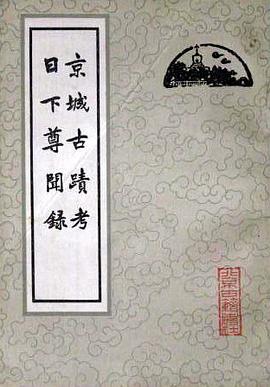 京城古蹟考
日下尊聞録
北京古籍出版社